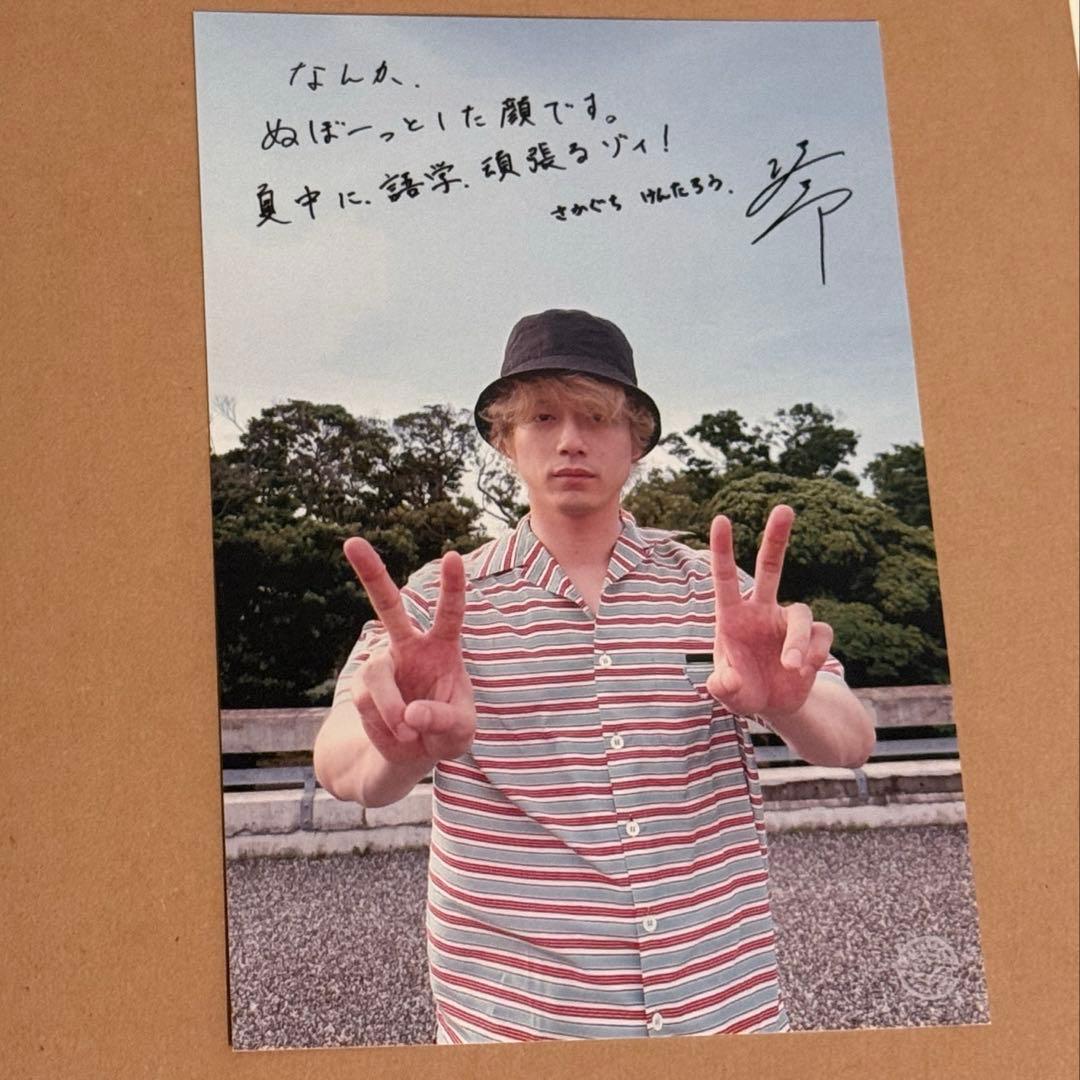 なんか、
ぬぼーっとした顔です。
夏中に、語学、頑張るゾィ!
さかぐち けんたろう、